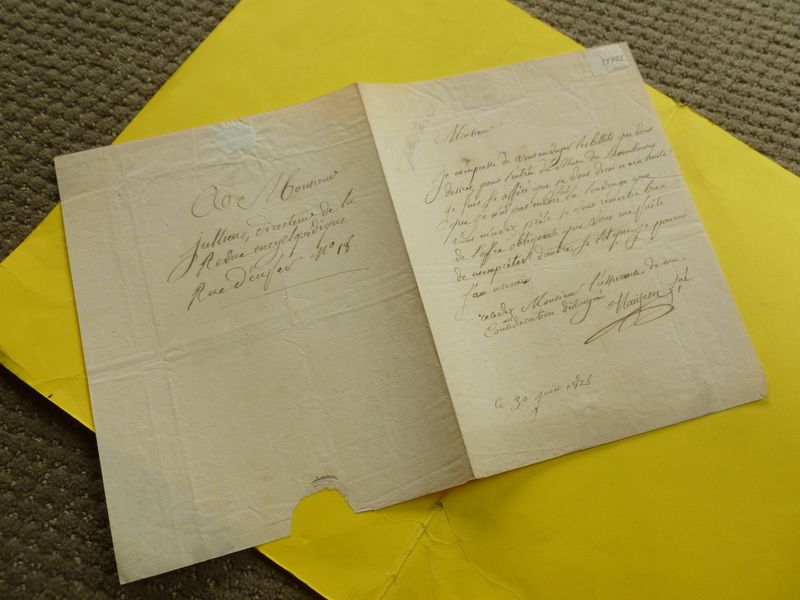 A Monsieur
Jullien, directeur de la
Revue encyclopédique
Rue d'enfer No 18
Monsieur
je m'empresse de vous envoyer les billets que vous
désirez pour l'entrée du Musée du Luxembourg
je suis si affairé que je vous dirai
que je n'ai pas l'ouvrage que
vous m'avez prêté je vous remercie bien
de l'offre obligeante que vous me faite
de d'autre sitôt que je pourrai
j'en userai
recevez Monsieur l'assurance de ma
Considération distinguée
le 30 juin 1826